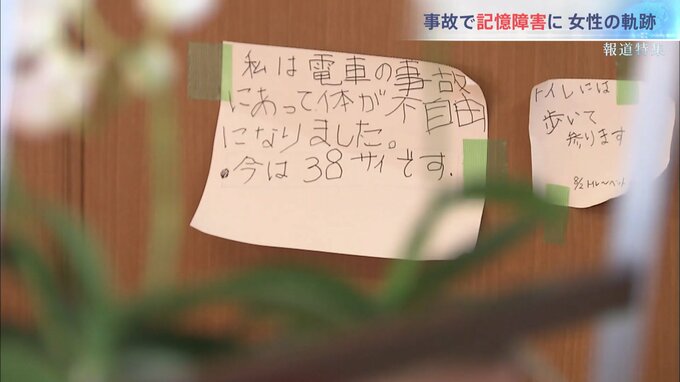 事故で記憶障害に 女性の軌跡
報道特集
私は電車の事故
にあって体が不自由
になりました。
今は38サイです.
トイレには
歩いて
参ります
8/2